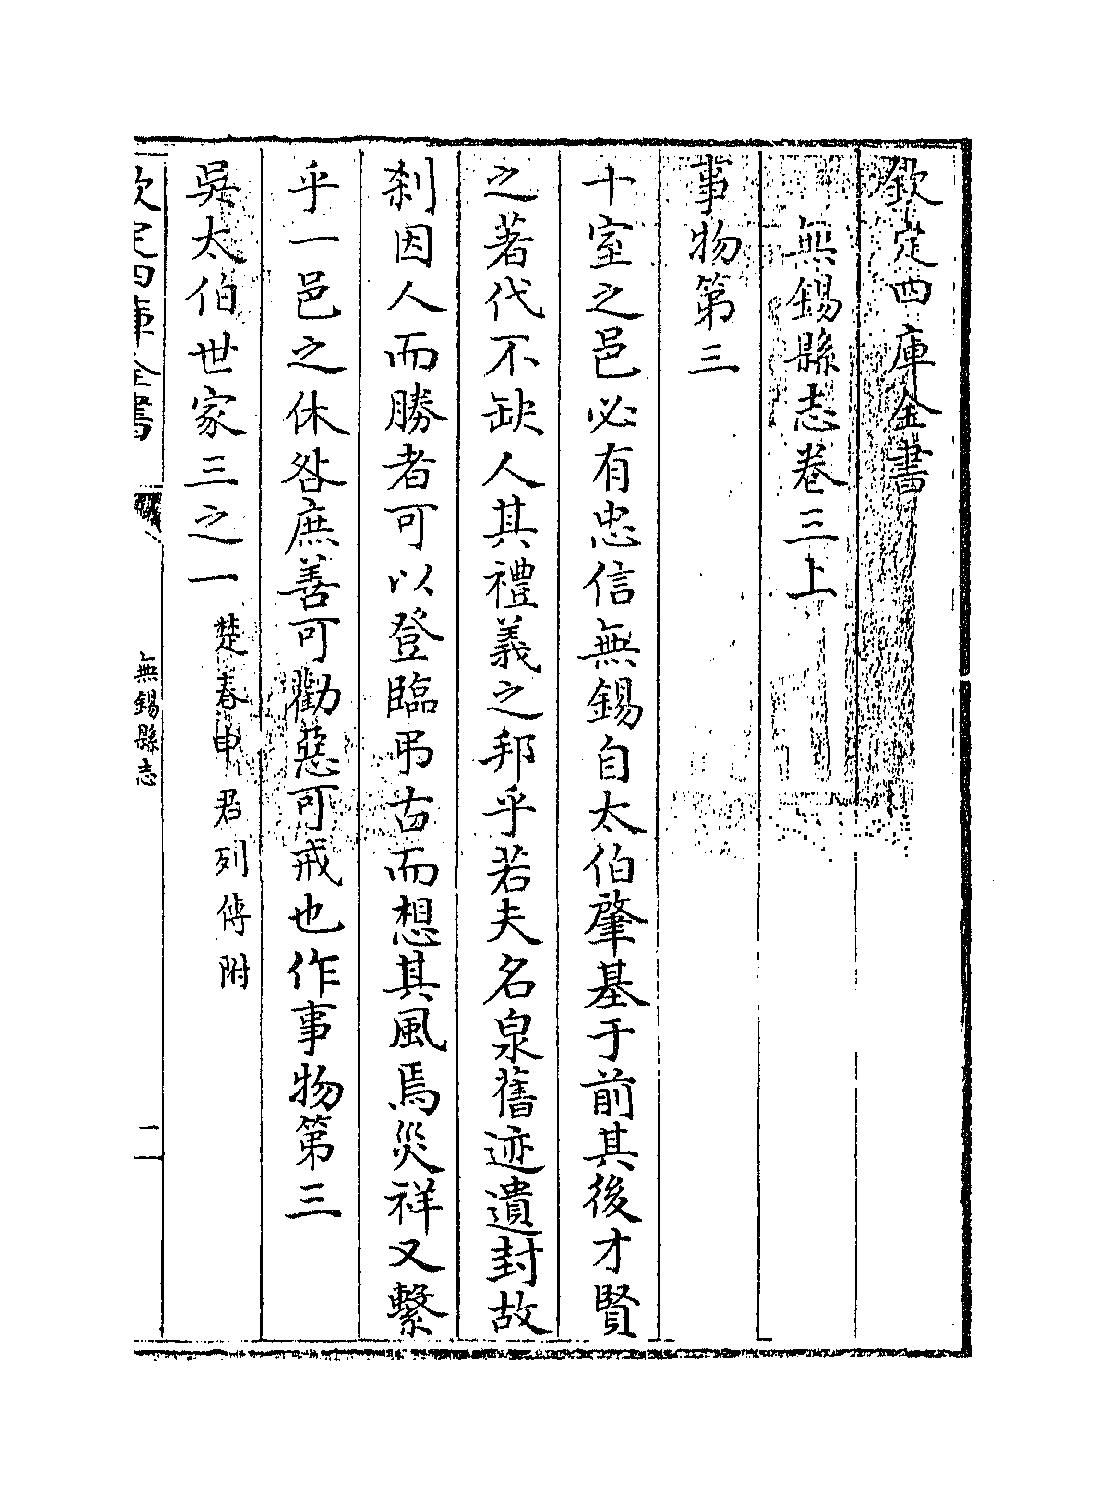 欽定四庫全書
無錫縣志卷三上
事物第三
十室之邑必有忠信無錫自太伯肇基于前其後才賢
之著代不缺人其禮義之邦乎若夫名泉舊迹遺封故
刹因人而勝者可以登臨弔古而想其風焉災祥又繫
乎一邑之休咎庶善可勸惡可戒也作事物第三
吳太伯世家三之一 楚春申君列傳附
欽定四庫全書
無錫縣志
二